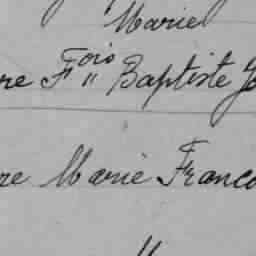 Mariel
re Fois " Baptiste Jo
re Marie Franco
"